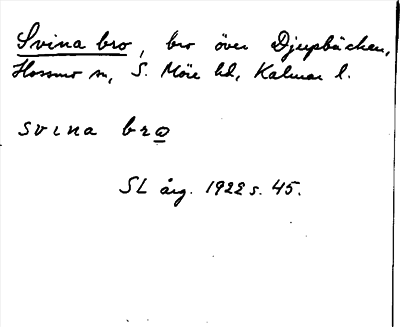 Svina bro, bro över Djupbäcken,
Hossmo sn, S. Möre hd, Kalmar l.
svina bro
SL årg. 1922 s. 45.